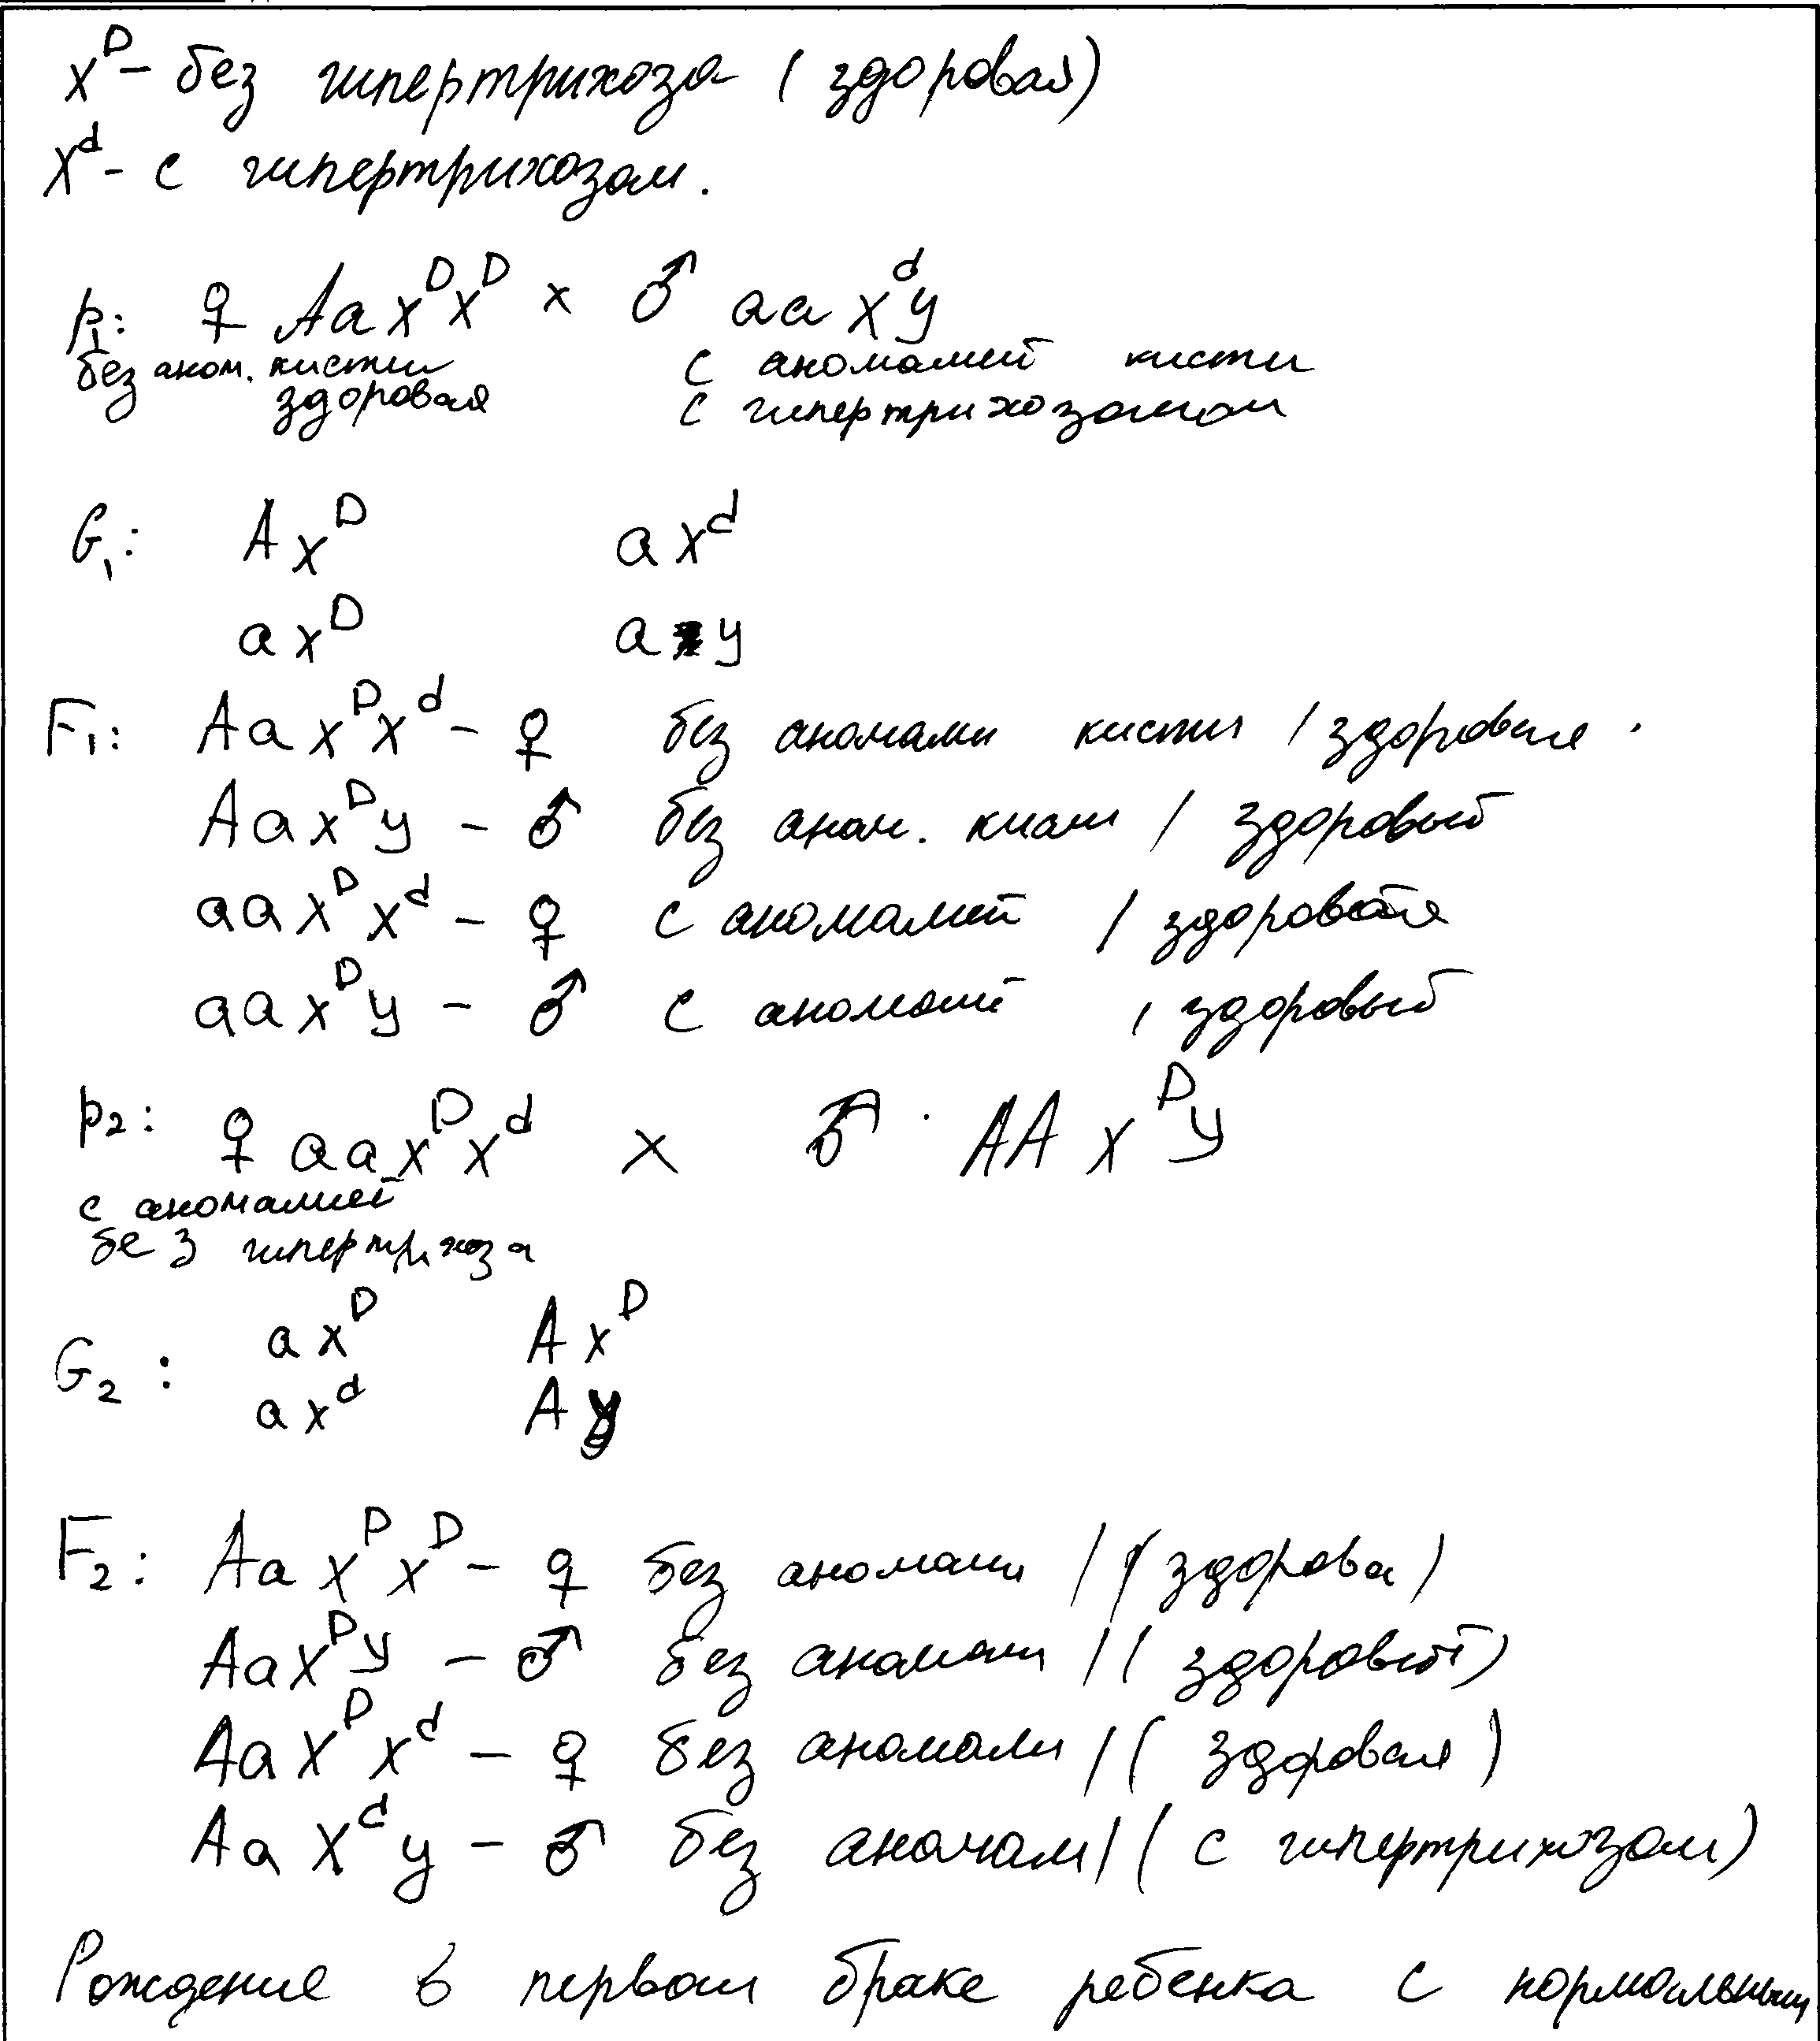 x^D – без гипертрихоза (здоровая)
x^d – с гипертрихозом.
p₁: ♀ Aa x^D x^D × ♂ aa x^d y
без аном. кисти с аномалией кисти
здоровая с гипертрихозомом
G₁: A x^D a x^d
a x^D a y
F₁: Aa x^D x^d – ♀ без аномалии кисти / здоровая
Aa x^D y – ♂ без аном. кисти / здоровый
aa x^D x^d – ♀ с аномалией / здоровая
aa x^D y – ♂ с аномалией / здоровый
p₂: ♀ aa x^D x^d × ♂ AA x^D y
с аномалией
без гипертрихоза
G₂: a x^D A x^D
a x^d A y
F₂: Aa x^D x^D – ♀ без аномалии / (здорова)
Aa x^D y – ♂ без аномалии / (здоровый)
Aa x^D x^d – ♀ без аномали / (здоровая)
Aa x^d y – ♂ без аномал / (с гипертрихозом)
Рождение в первом браке ребенка с нормальным